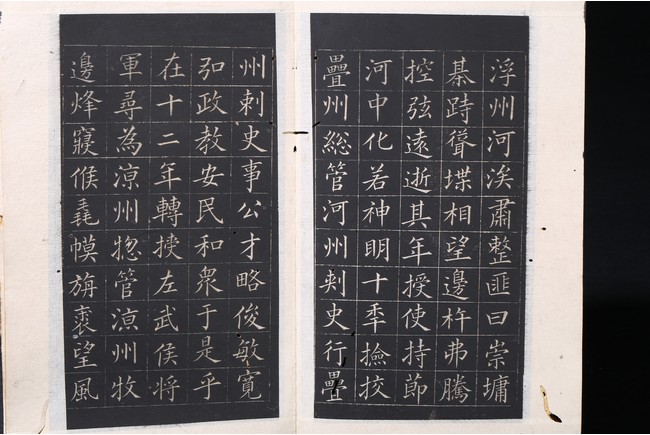 浮州河涘肅整匪曰崇墉
棊跱聳堞相望邊杵弗騰
控弦遠逝其年授使持節
河中化若神明十季撿挍
疊州総管河州刾史行疊
州刺史事公才略俊敏寬
弘政教安民和衆于是乎
在十二年轉授左武侯將
軍尋為涼州惣管涼州牧
邊烽寢候毳幙旃裘望風